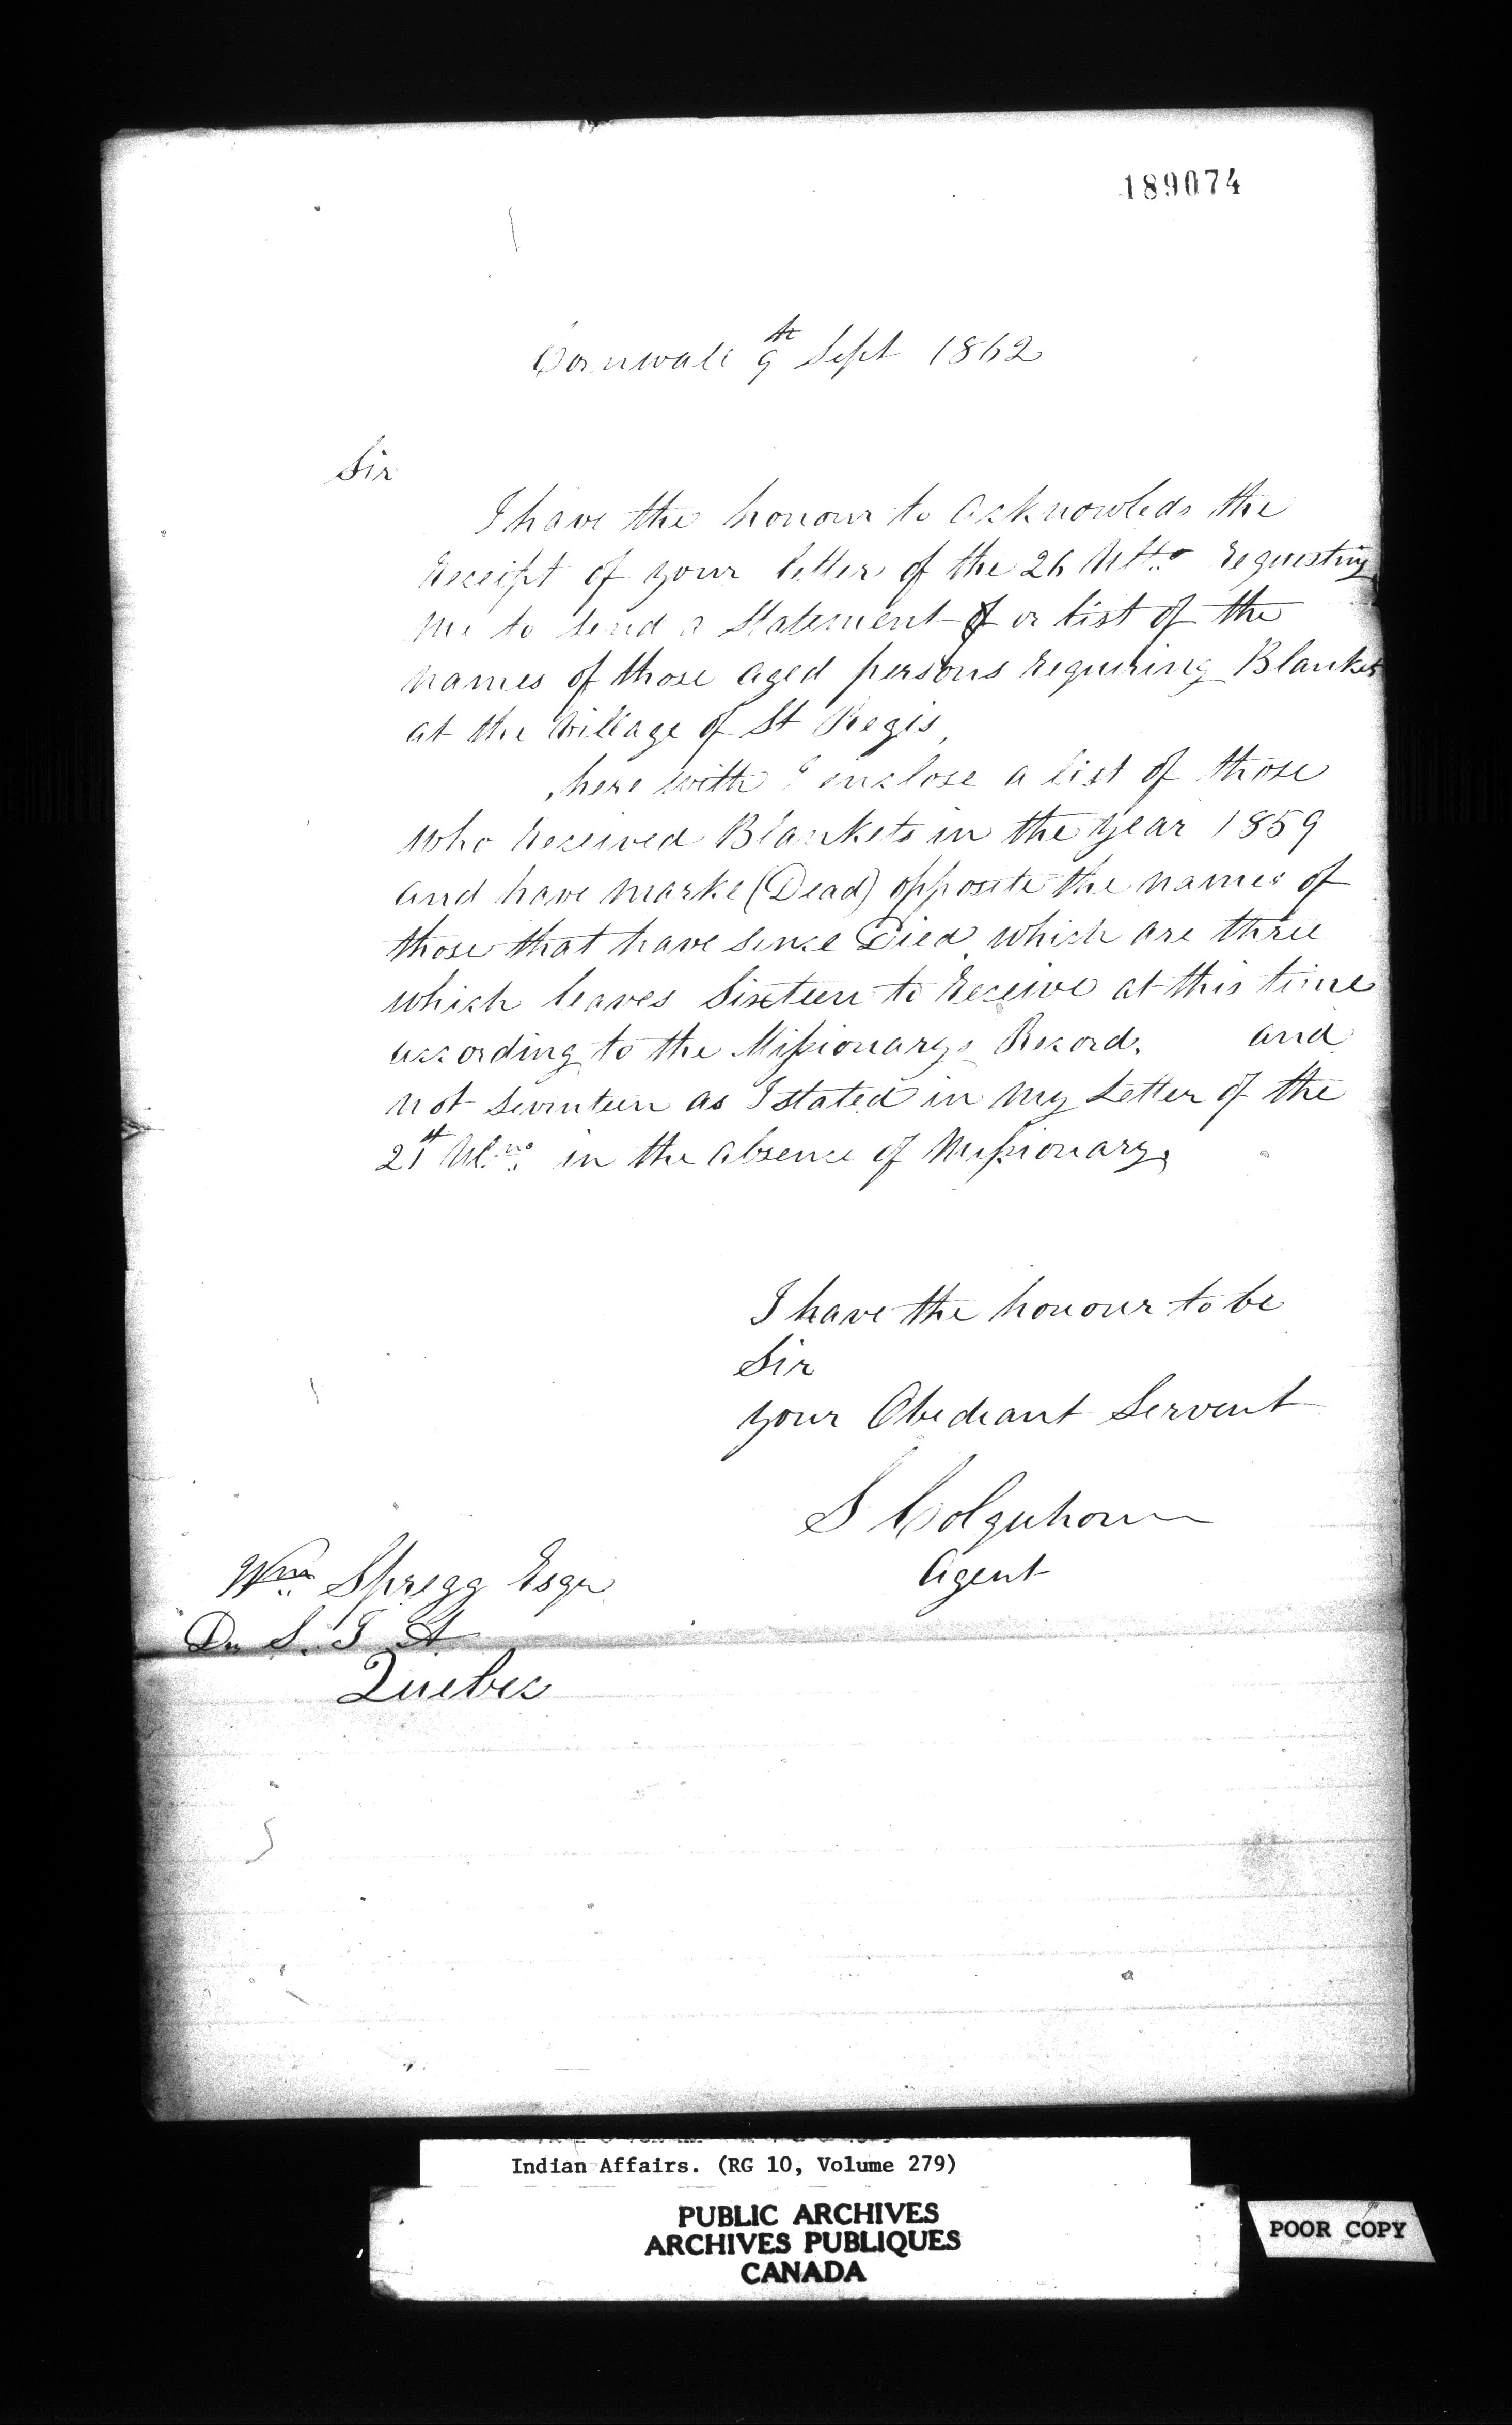 189074
Cornwall 9th Sept 1862
Sir
I have the honour to acknowledg the
Receipt of your letter of the 26 Ulto requesting
me to send a Statement of or list of the
names of those aged persons requiring Blankets
at the Village of St Regis,
here with I enclose a list of those
who Received Blankets in the year 1859
and have marke (Dead) opposite the names of
those that have since Died which are three
which leaves Sixteen to Receive at this time
according to the Missionarys Record. and
not Seventeen as I stated in my Letter of the
21st in the absence of Missionary,
I have the honour to be
Sir
your Obediant Servent
S Colquhoun
Agent
Wm Spragg Esqr
D. S. I A
Quebec
Indian Affairs. (RG 10, Volume 279)
PUBLIC ARCHIVES
ARCHIVES PUBLIQUES
CANADA
POOR COPY